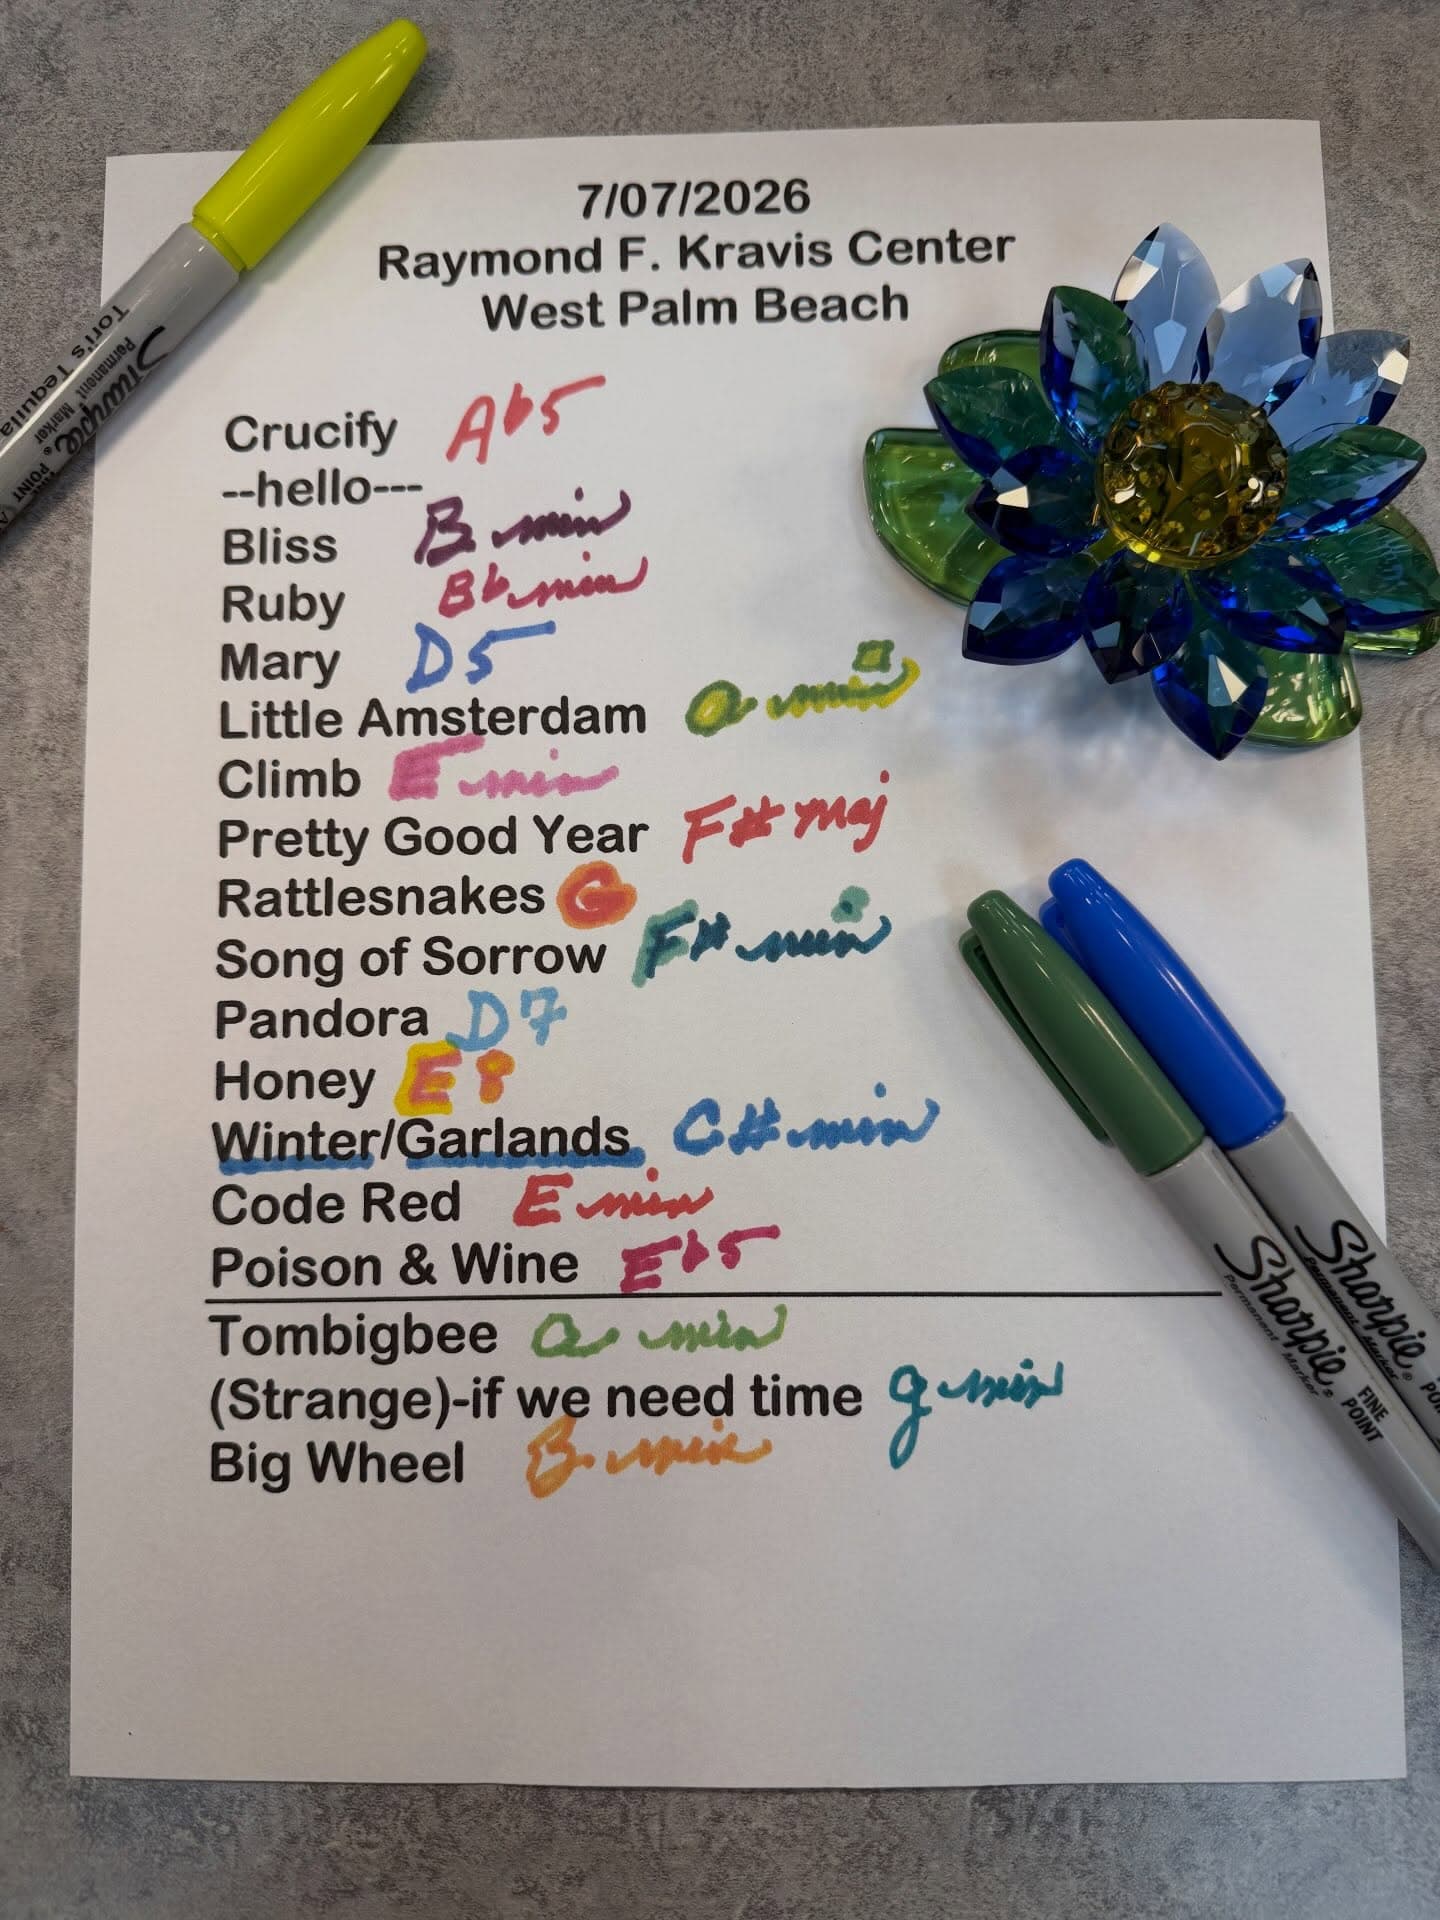 7/07/2026
Raymond F. Kravis Center
West Palm Beach
Crucify Ab5
--hello---
Bliss B min
Ruby Bb min
Mary D5
Little Amsterdam a min
Climb E min
Pretty Good Year F# maj
Rattlesnakes G
Song of Sorrow F# min
Pandora D7
Honey E8
Winter/Garlands C# min
Code Red E min
Poison & Wine Eb5
Tombigbee a min
(Strange)-if we need time g min
Big Wheel B min
Tori's Tequila
Sharpie
Permanent Marker
Sharpie
Permanent Marker
FINE
POINT
Sharpie
Permanent Marker